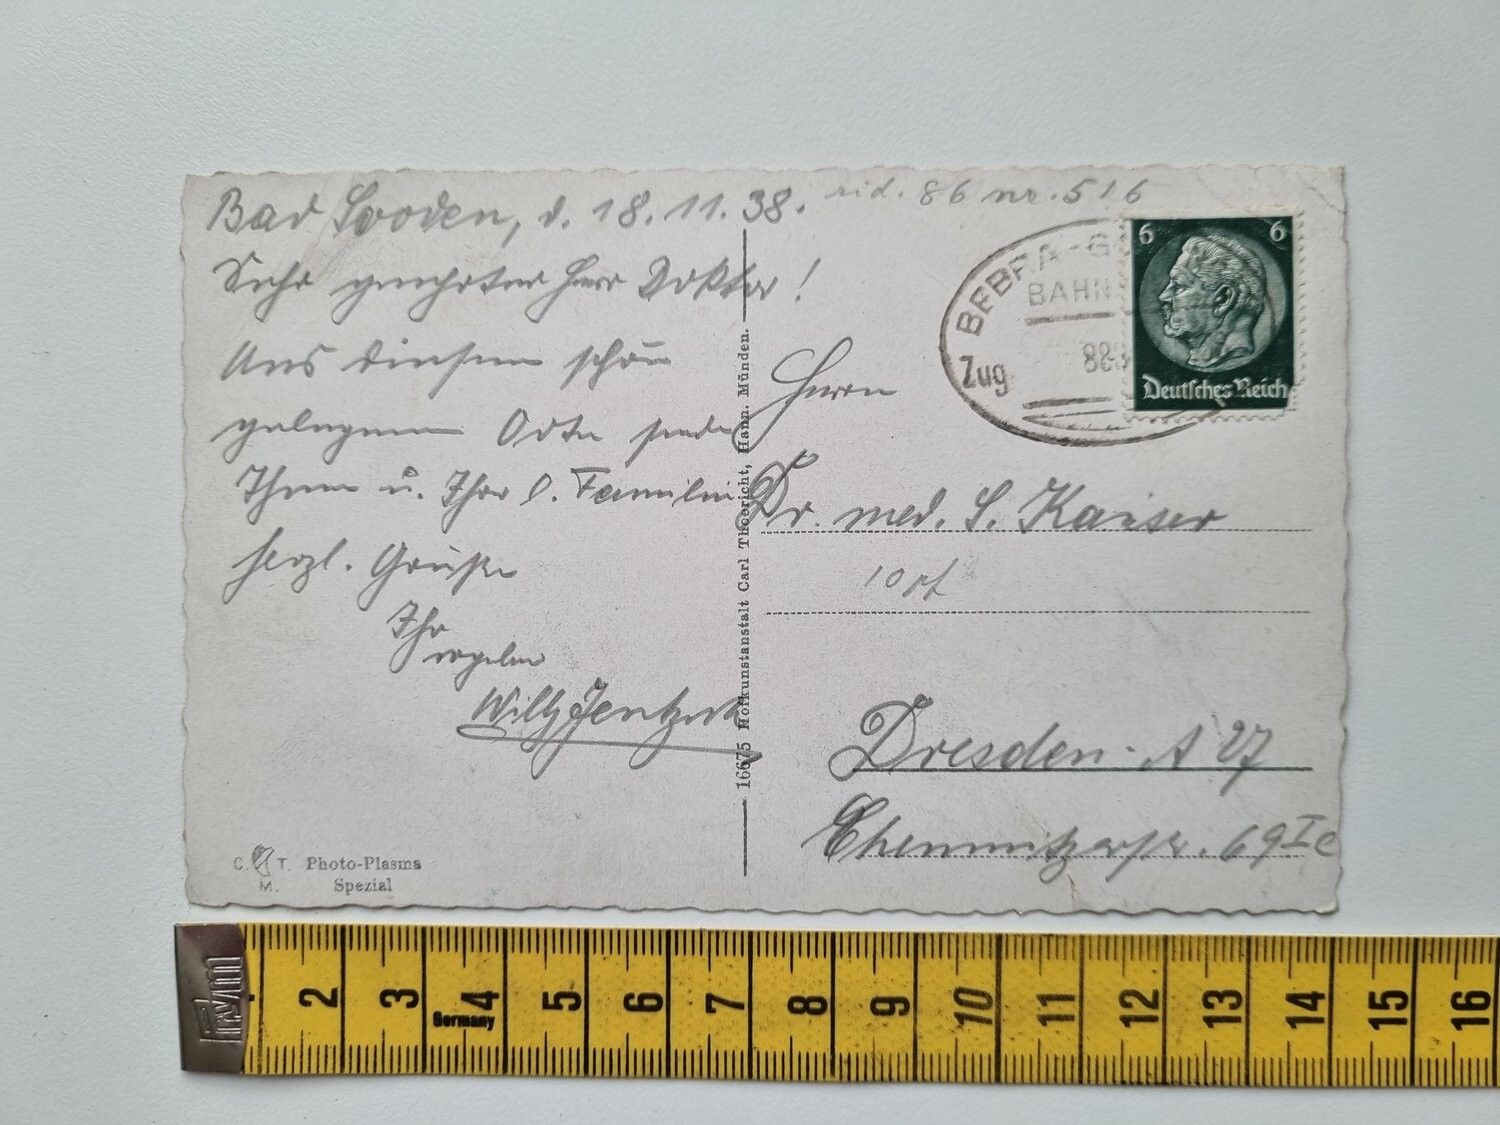 Bad Sooden, d. 18.11.38.
rid. 86 nr. 516
Sehr geehrter Herr Doktor!
Aus diesem schön
gelegenen Orte sende
Ihnen u. Ihrer l. Familie
herzl. Grüße
Ihr
Willy
BEBRA-G
BAHN
Zug
6 6
Deutsches Reich
Herrn
Dr. med. S. Kaiser
10 pf
Dresden-A 27
Chemnitzerstr. 69 I c
16675 Hofkunstanstalt Carl Thoericht, Hann. Münden.
C. T. M.
Photo-Plasma
Spezial
2 3 4 5 6 7 8 9 10 11 12 13 14 15 16
Germany